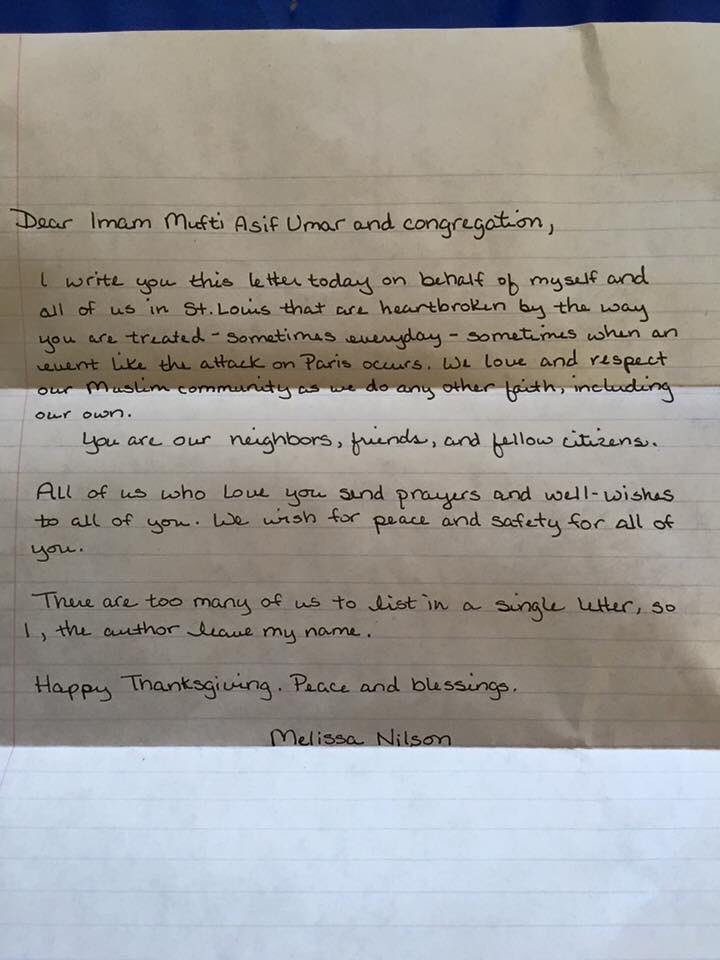 Dear Imam Mufti Asif Umar and congregation,
I write you this letter today on behalf of myself and
all of us in St. Louis that are heartbroken by the way
you are treated - sometimes everyday - sometimes when an
event like the attack on Paris occurs. We love and respect
our Muslim community as we do any other faith, including
our own.
You are our neighbors, friends, and fellow citizens.
All of us who love you send prayers and well-wishes
to all of you. We wish for peace and safety for all of
you.
There are too many of us to list in a single letter, so
I, the author leave my name.
Happy Thanksgiving. Peace and blessings.
Melissa Nilson